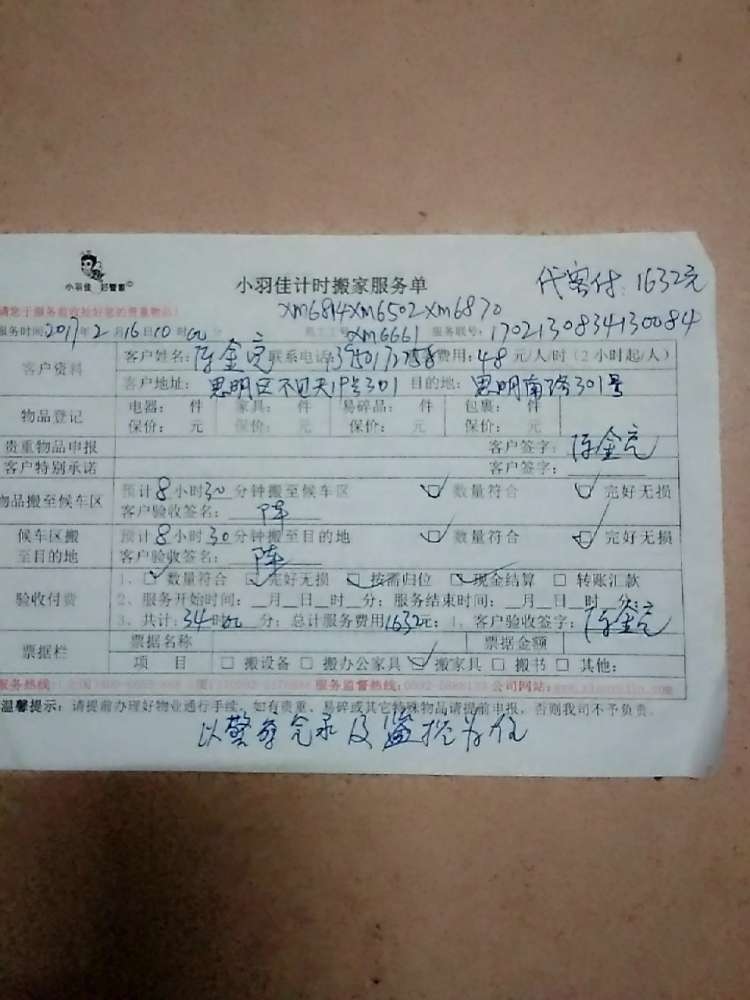 小羽佳 好管家
小羽佳计时搬家服务单 代客付:1632元
请您于服务前收拾好您的贵重物品!
xm6814xm6502xm6870
服务时间2017年2月16日10时00分 xm6661 服务联号:1702130834130084
客户资料 客户姓名:陈金亮 联系电话 费用:48元/人/时(2小时起/人)
客户地址:思明区不见天19号301 目的地:思明南路301号
物品登记 电器: 件 家具: 件 易碎品: 件 包裹: 件
保价: 元 保价: 元 保价: 元 保价: 元
贵重物品申报 客户签字:陈金亮
客户特别承诺 客户签字:
物品搬至候车区 预计8小时30分钟搬至候车区 数量符合 完好无损
客户验收签名: 陈
候车区搬至目的地 预计8小时30分钟搬至目的地 数量符合 完好无损
客户验收签名: 陈
验收付费 1、数量符合 完好无损 按需归位 现金结算 转账汇款
2、服务开始时间: 月 日 时 分;服务结束时间: 月 日 时 分;
3、共计:34时00分;总计服务费用1632元;1、客户验收签字:陈金亮
票据栏 票据名称 票据金额
项 目 搬设备 搬办公家具 搬家具 搬书 其他:
服务热线: 服务监督热线: 公司网站:
温馨提示:请提前办理好物业通行手续,如有贵重、易碎或其它特殊物品请提前申报,否则我司不予负责。
以警务记录及监控为住